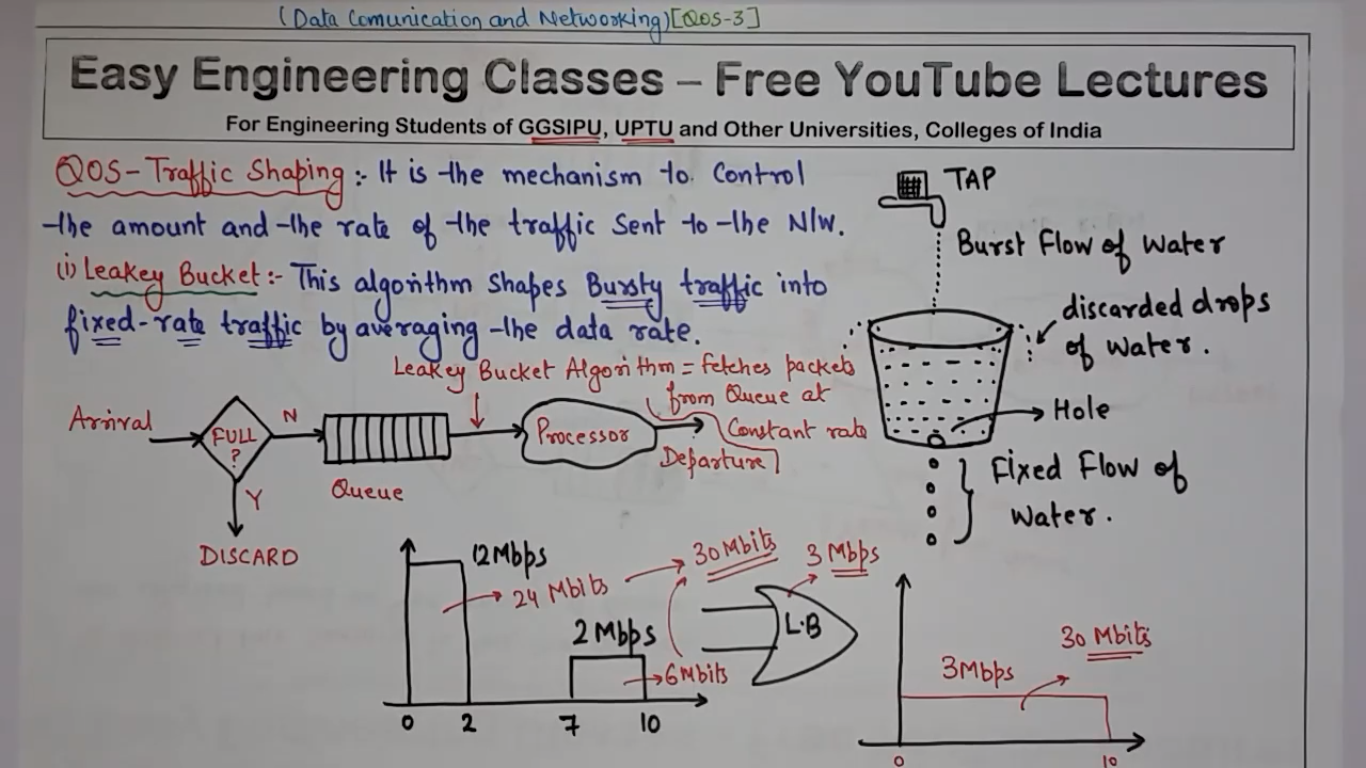 (Data Comunication and Networking)[QOS-3]
Easy Engineering Classes – Free YouTube Lectures
For Engineering Students of GGSIPU, UPTU and Other Universities, Colleges of India
QOS-Traffic Shaping :- It is the mechanism to control
the amount and the rate of the traffic sent to the N/w.
(i) Leakey Bucket :- This algorithm shapes Bursty traffic into
fixed-rate traffic by averaging the data rate.
TAP
Burst Flow of Water
discarded drops
of water.
Hole
Fixed Flow of
Water.
Leakey Bucket Algorithm = fetches packets
from Queue at
Constant rate
Arrival
FULL
?
N
Y
DISCARD
Queue
Processor
Departure
12Mbps
24 Mbits
30Mbits
2Mbps
6Mbits
0 2 7 10
3 Mbps
L.B
3Mbps
30 Mbits
0 10